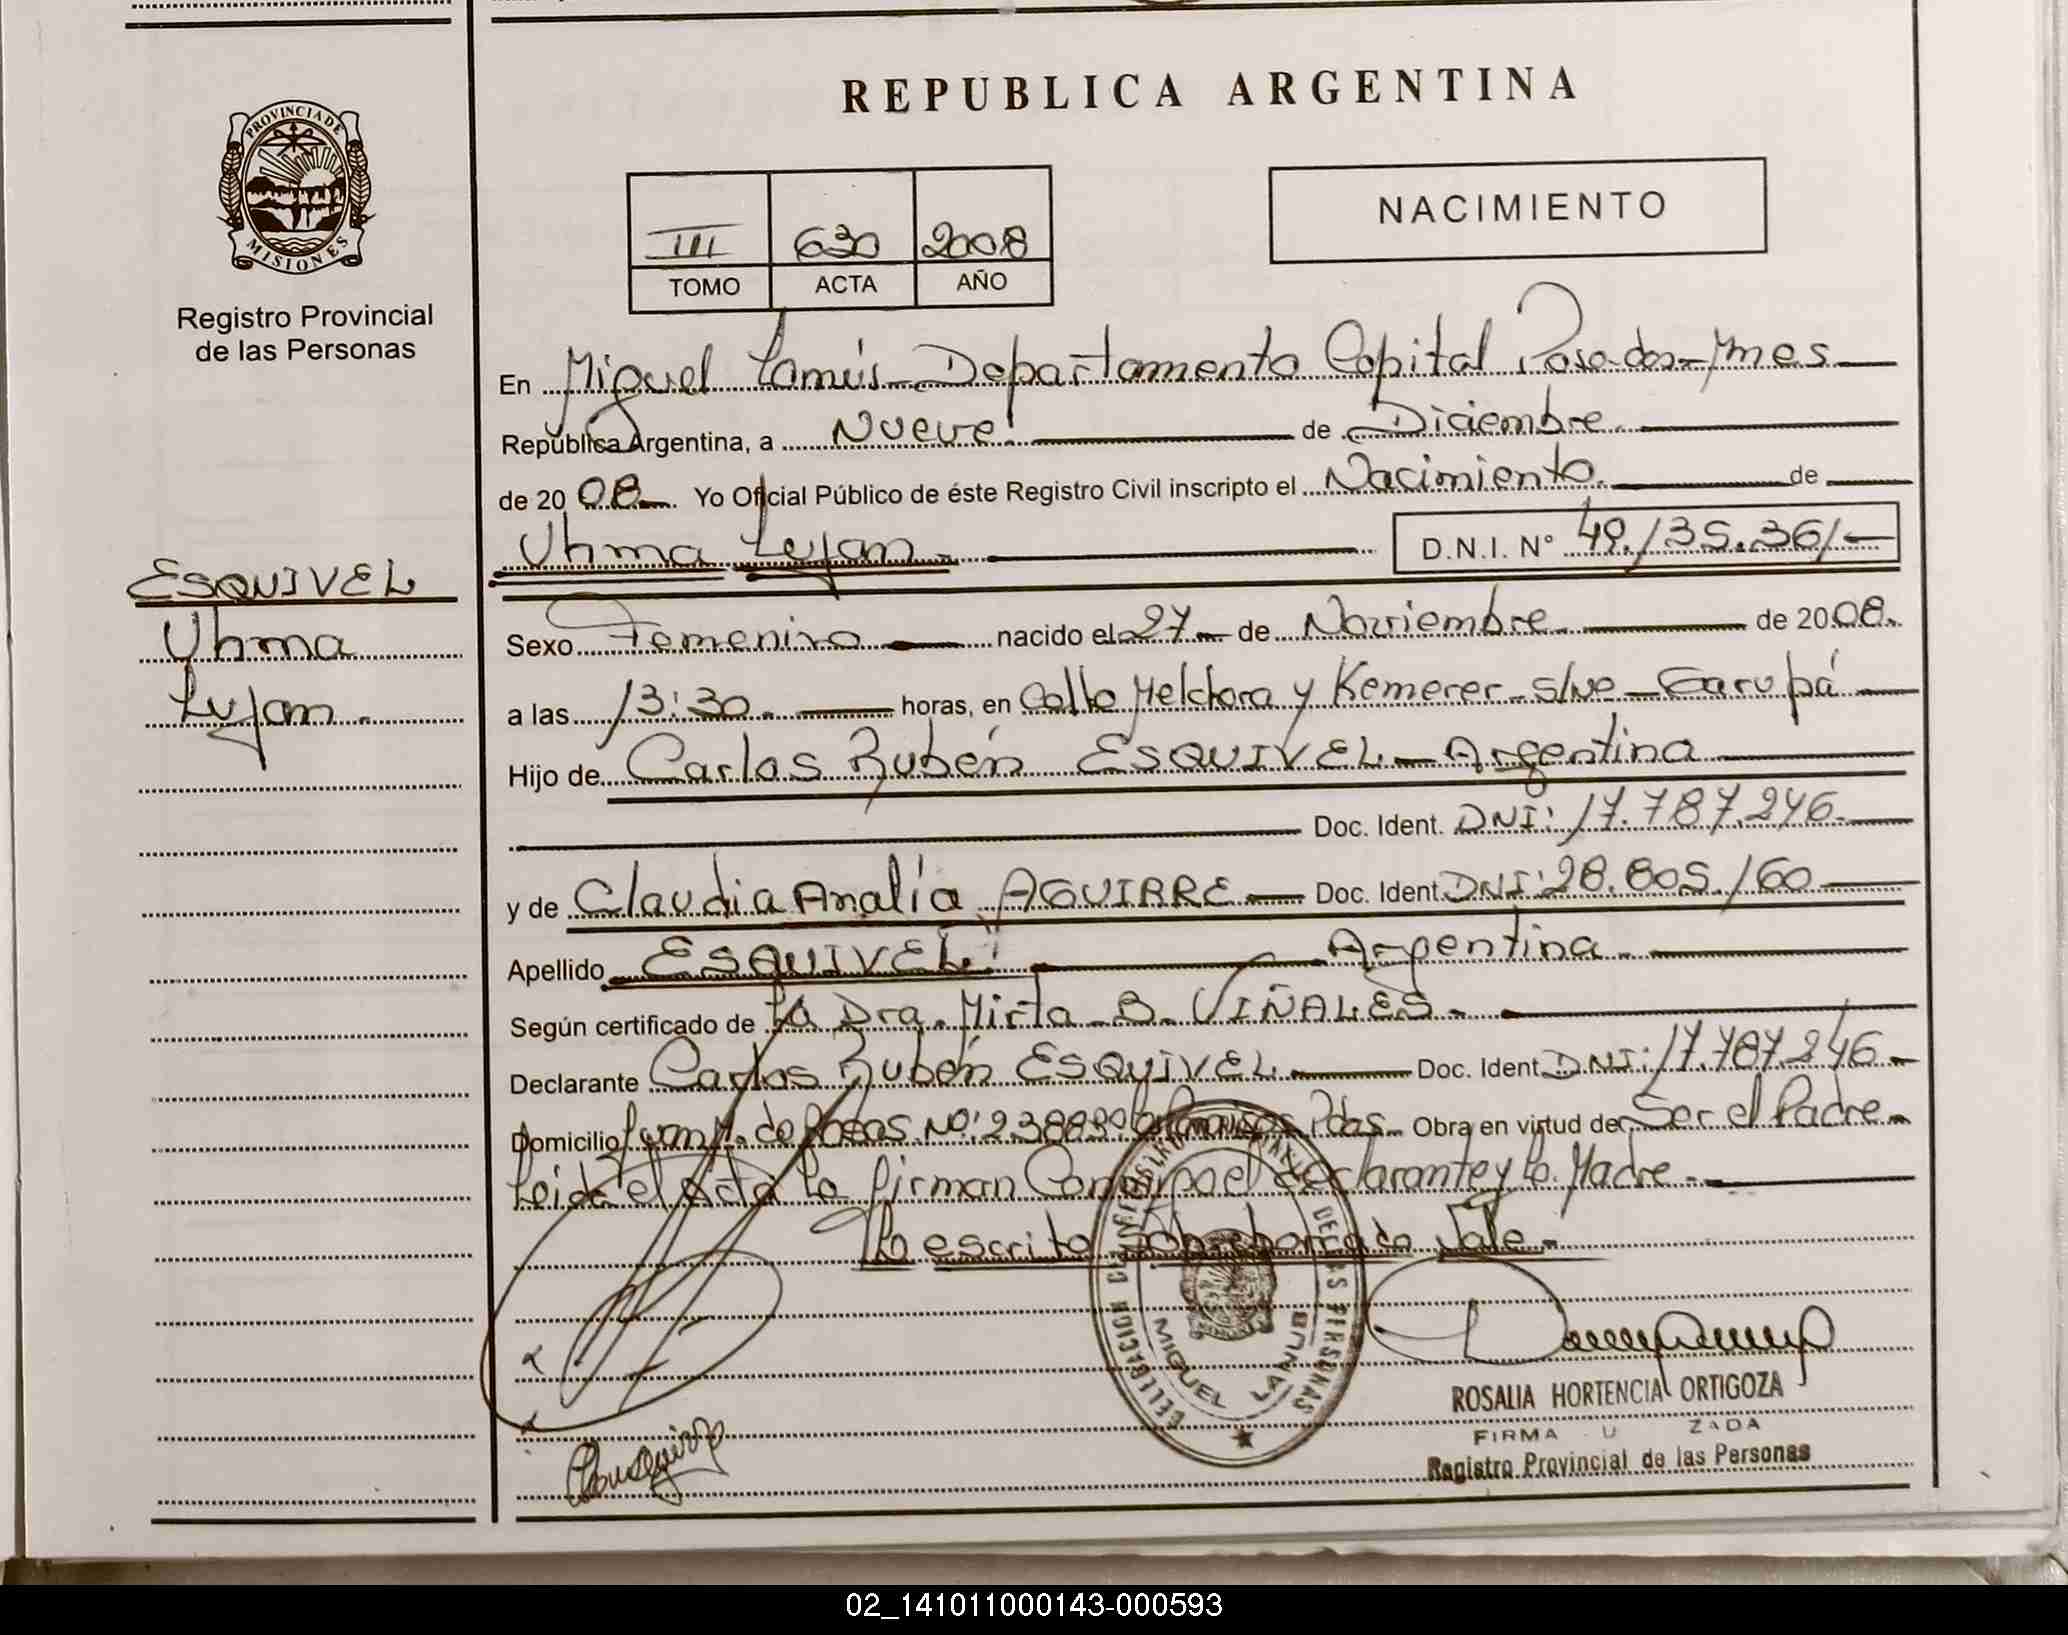 REPUBLICA ARGENTINA
PROVINCIA DE
MISIONES
Registro Provincial
de las Personas
III 630 2008
TOMO ACTA AÑO
NACIMIENTO
En Miguel Lanús Departamento Capital Posadas-Mnes
República Argentina, a Nueve de Diciembre
de 2008 Yo Oficial Público de éste Registro Civil inscripto el Nacimiento de
Uhma Lujan D.N.I. N° 49.135.361
ESQUIVEL
Uhma
Lujan.
Sexo Femenino nacido el 27 de Noviembre de 2008.
a las 13:30. horas, en Calle Melchora y Kemerer-s/nº-Garupá
Hijo de Carlos Rubén ESQUIVEL-Argentina
Doc. Ident. DNI: 17.787.246
y de Claudia Analía AGUIRRE Doc. Ident. DNI: 28.805.160
Apellido ESQUIVEL Argentina
Según certificado de La Dra. Mirta B. VIÑALES.
Declarante Carlos Rubén ESQUIVEL Doc. Ident. DNI: 17.787.246
Domicilio Nº: Pdas. Obra en virtud de Ser el Padre
Leida el Acta la firman Conmigo el declarante y la Madre
Lo escrito Sobreborrado Vale.
DELEGACION
DE LAS PERSONAS
MIGUEL LANUS
ROSALIA HORTENCIA ORTIGOZA
FIRMA
Registro Provincial de las Personas
02_141011000143-000593